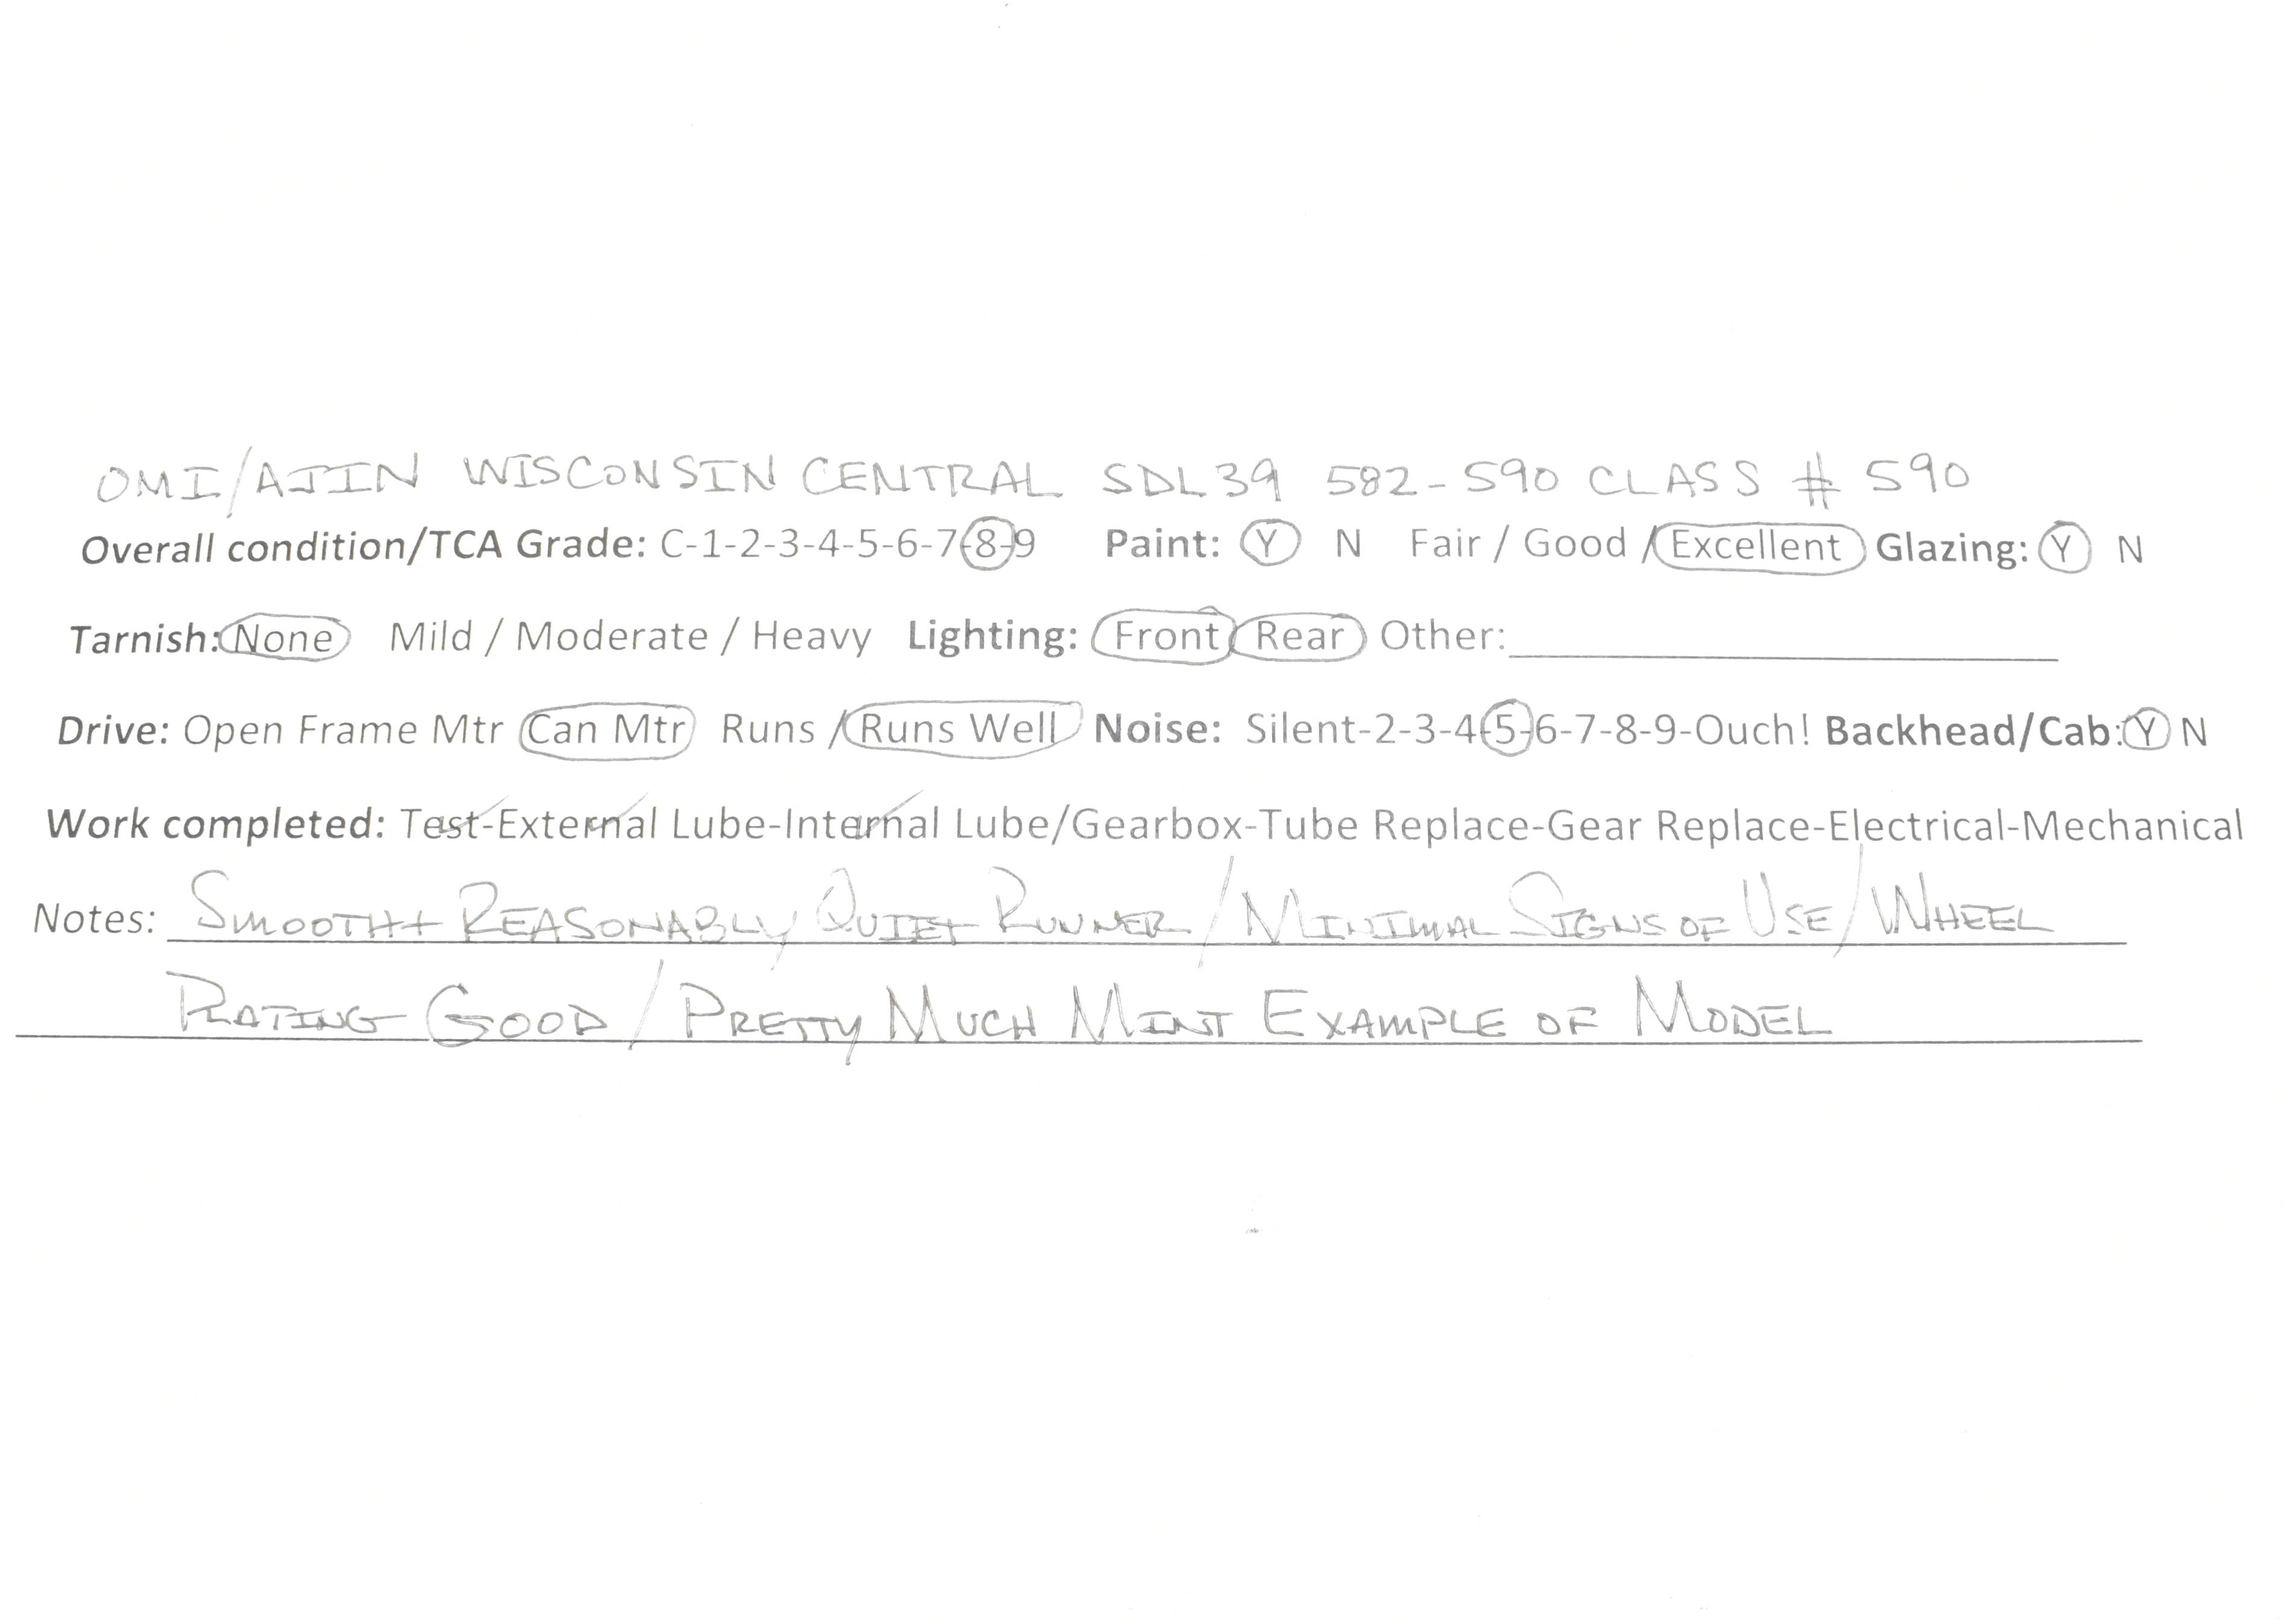 OMI/AJIN WISCONSIN CENTRAL SDL39 582-590 CLASS # 590
Overall condition/TCA Grade: C-1-2-3-4-5-6-7-8-9 Paint: Y N Fair / Good / Excellent Glazing: Y N
Tarnish: None Mild / Moderate / Heavy Lighting: Front Rear Other:
Drive: Open Frame Mtr Can Mtr Runs / Runs Well Noise: Silent-2-3-4-5-6-7-8-9-Ouch! Backhead/Cab: Y N
Work completed: Test-External Lube-Internal Lube/Gearbox-Tube Replace-Gear Replace-Electrical-Mechanical
Notes: SMOOTH + REASONABLY QUIET RUNNER / MINIMAL SIGNS OF USE / WHEEL
PLATING GOOD / PRETTY MUCH MINT EXAMPLE OF MODEL